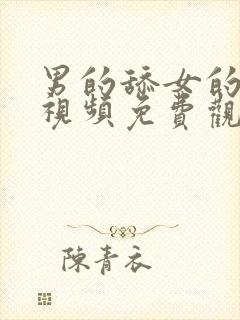 男的舔女的
視頻免費觀
陳青衣